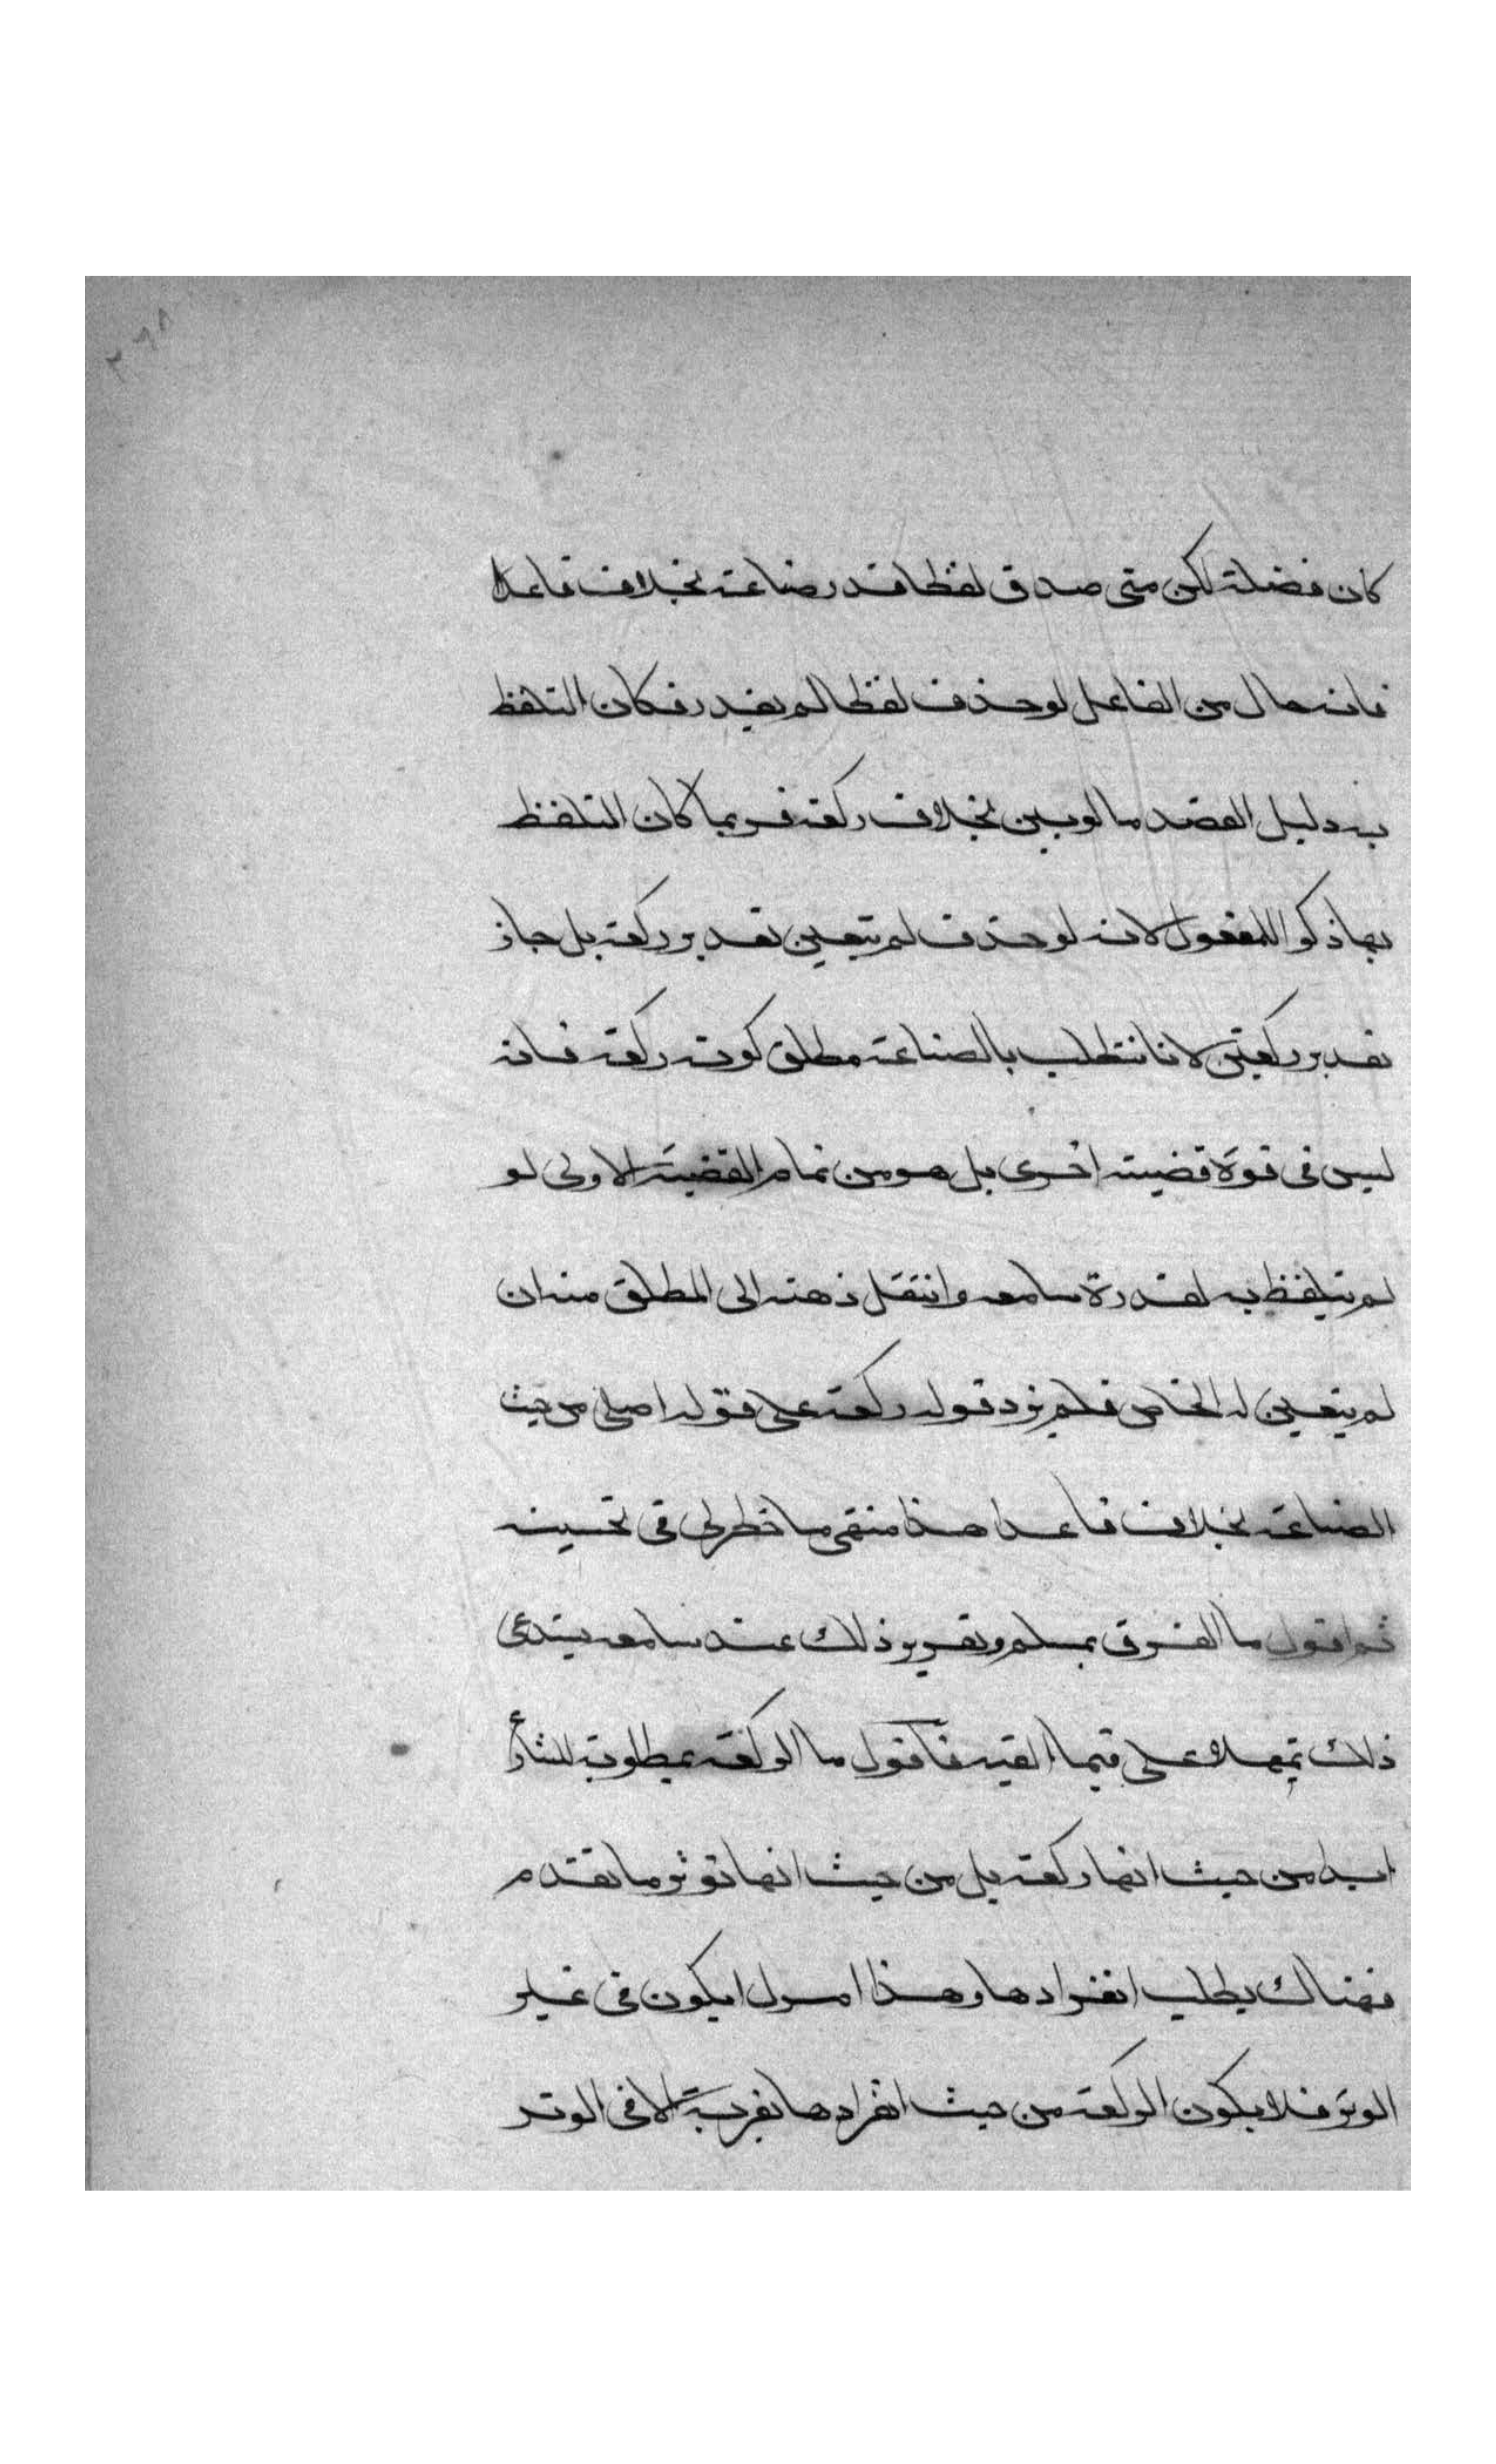 كان فضلة لكن متى صدق لفظا قدر صناعة بخلاف قاعدا
فانه حال من الفاعل لو حذف لفظا لم يفد رفكان التلفظ
به دليل القصد ما لو بين بخلاف ركعة فربما كان التلفظ
بها ذكرا للمفعول لانه لو حذف لم يتعين تقدير ركعة بل جاز
تقدير ركعتين لانا نتطلب بالصناعة مطلق كونه ركعة فانه
ليس في قوة قضية اخرى بل هو من تمام القضية الاولى لو
لم يتلفظ به لقدرة سامعه وانتقل ذهنه الى المطلق منه ان
لم يتعين له الخاص فلم يزد قوله ركعة على قوله اصلي من حيث
الصناعة بخلاف قاعدا هذا منتهى ما خطر لي في تحسينه
ثم اقول ما الفرق بمسلم وتقرير ذلك عند سامعه يستدعي
ذلك تمهلا على فيما القيه فاقول ما الركعة بمطلوبة للشارع
ابدا من حيث انها ركعة بل من حيث انها توتر ما تقدم
فهناك يطلب انفرادها وهذا امر لا يكون في غير
الوتر فلا يكون الركعة من حيث انفرادها بقربة الا في الوتر